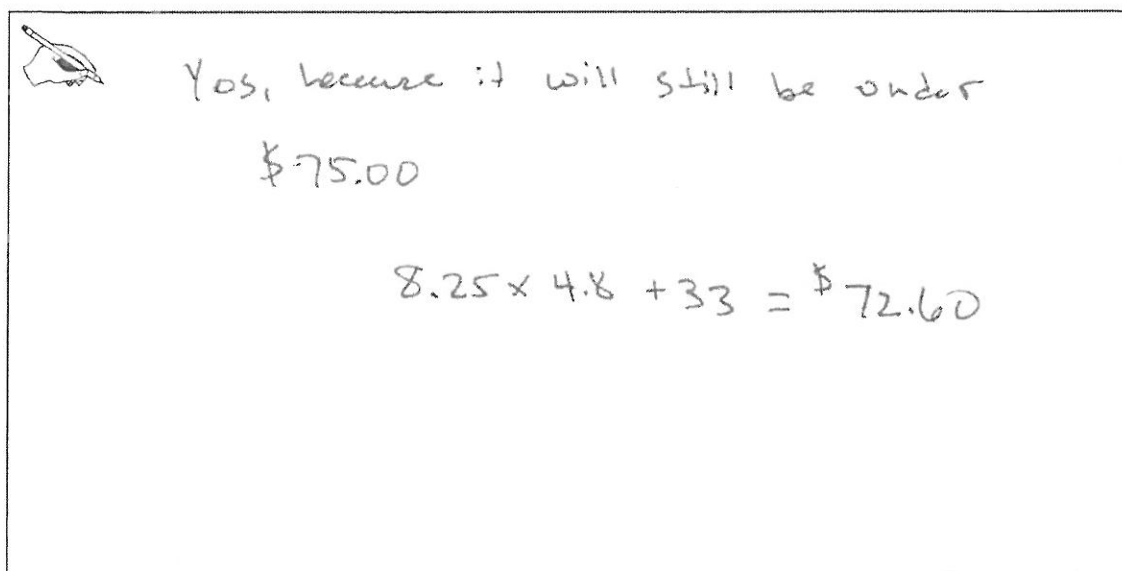 Yes, because it will still be under
$75.00
8.25 x 4.8 + 33 = $72.60